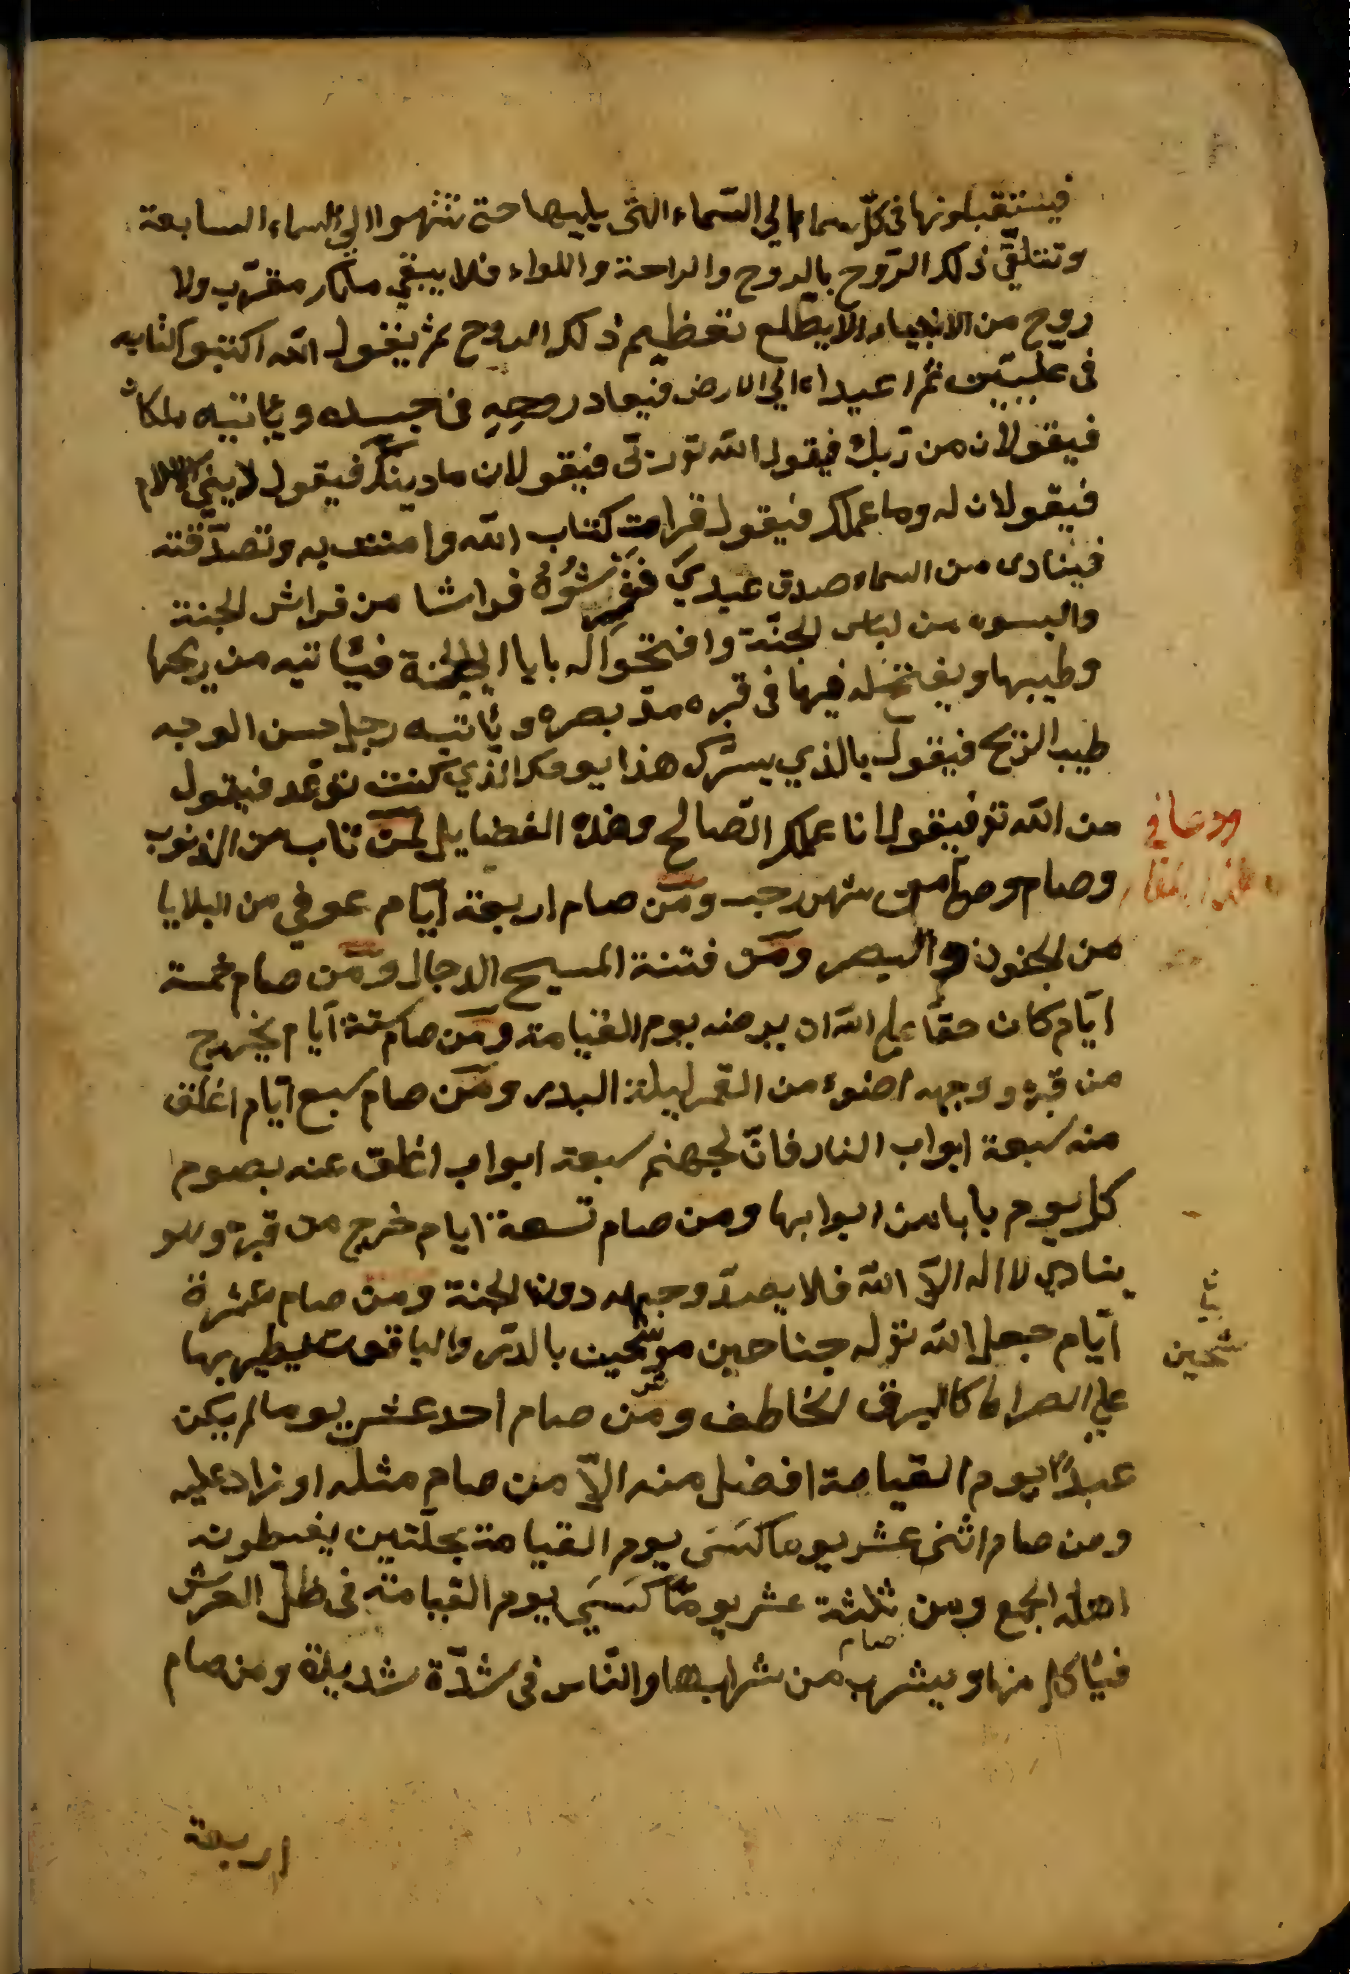 فيستقبلونها في كلّ سماء الي السّماء التي يليها حتى تنتهوا الي السماء السابعة
وتتلقّي ذلك الرّوح بالروح والراحة واللواء فلا يبقي ملك مقرّب ولا
روح من الانبياء الا يطّلع تعظيم ذلك الروح ثم يقول الله اكتبوا كتابه
في علّيّين ثم اعيداه الي الارض فيعاد روحه في جسده ويأتيه ملكان
فيقولان من ربّك فيقول الله تع ربّي فيقولان ما دينك فيقول ديني الاسلام
فيقولان له وما عملك فيقول قرات كتاب الله وامنت به وتصدّقته
فينادى من السماء صدق عبدي ففرشوه فراشا من فراش الجنة
والبسوه من لباس الجنّة وافتحوا له بابا الي الجنة فيأتيه من ريحها
وطيبها ويفتح له فيها في قبره مدّ بصره ويأتيه رجل حسن الوجه
طيب الريح فيقول بالذي يسرّك هذا يومك الّذي كنت توعد فيقول
من الله تع فيقول انا عملك الصّالح وهذه الفضايل لمن تاب من الذنوب
وصام يوما من شهر رجب ومن صام اربعة ايّام عوفي من البلايا
من الجنون والبصر ومن فتنة المسيح الدجال ومن صام خمسة
ايّام كان حقّا علي الله ان يرضه يوم القيامة ومن صام ستة ايّام يخرج
من قبره ووجهه اضوء من القمر ليلة البدر ومن صام سبع ايّام اغلق
منه سبعة ابواب النار فانّ لجهنم سبعة ابواب اغلق عنه بصوم
كل يوم بابا من ابوابها ومن صام تسعة ايام خرج من قبره وهو
ينادي لا اله الاّ الله فلا يصدّ وجهه دون الجنة ومن صام عشرة
ايّام جعل الله تع له جناحين موشّحين بالدّر والياقوت يطير بها
علي الصراط كالبرق الخاطف ومن صام احد عشر يوما لم يكن
عبدٌ يوم القيامة افضل منه الاّ من صام مثله او زاد عليه
ومن صام اثنى عشر يوما كسى يوم القيامة بحلّتين يغبطونه
اهل الجمع ومن صام ثلثة عشر يومًا كسي يوم القيامة في ظلّ العرش
فيأكل منها ويشرب من شرابها والنّاس في شدّة شديدة ومن صام
شحين
اربعة